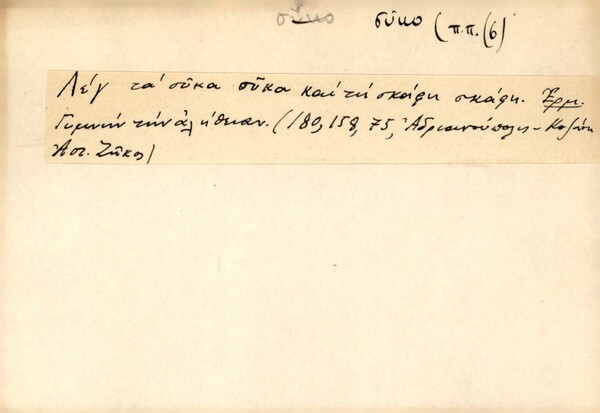 σῦκο σῦκο (π.π. (6)
Λέγ τα' σῦκα σῦκα και' τή σκάφη σκάφη. Ἑρμ.
Γυμνήν τήν ἀλήθειαν. (180, 158, 75, Ἀδριανούπολις - Κοζάνη
Ἀστ. Ζῆκος)